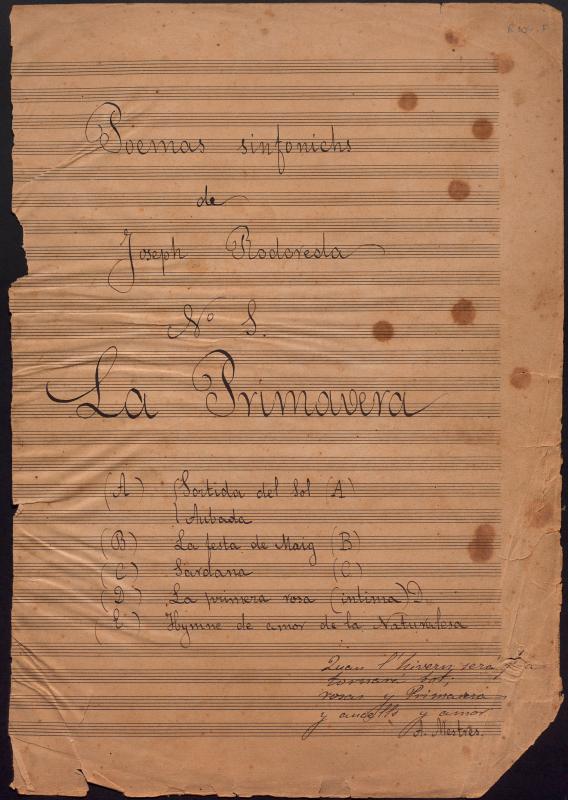 Poemas sinfonichs
de
Joseph Rodoreda
Nº 1.
La Primavera
(A) Sortida del Sol (A)
Aubada
(B) La festa de Maig (B)
(C) Sardana (C)
(D) La primera rosa (íntima) D.
(E) Hymne de amor de la Naturalesa
Quan l'hivern será
tornará tot;
rosas y Primavera
y aucells y amor
A. Mestres.